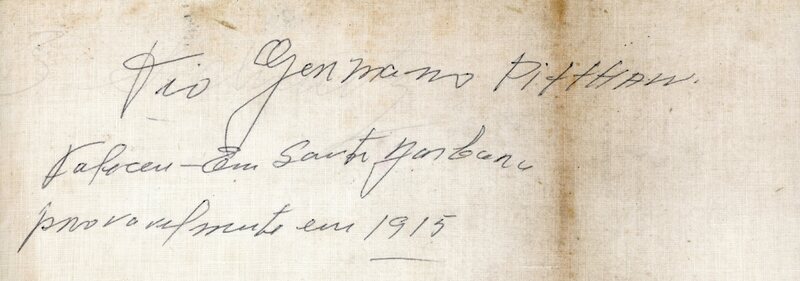 Tio Germano Pitthan.
Faleceu - Em Santa Barbara
provavelmente em 1915